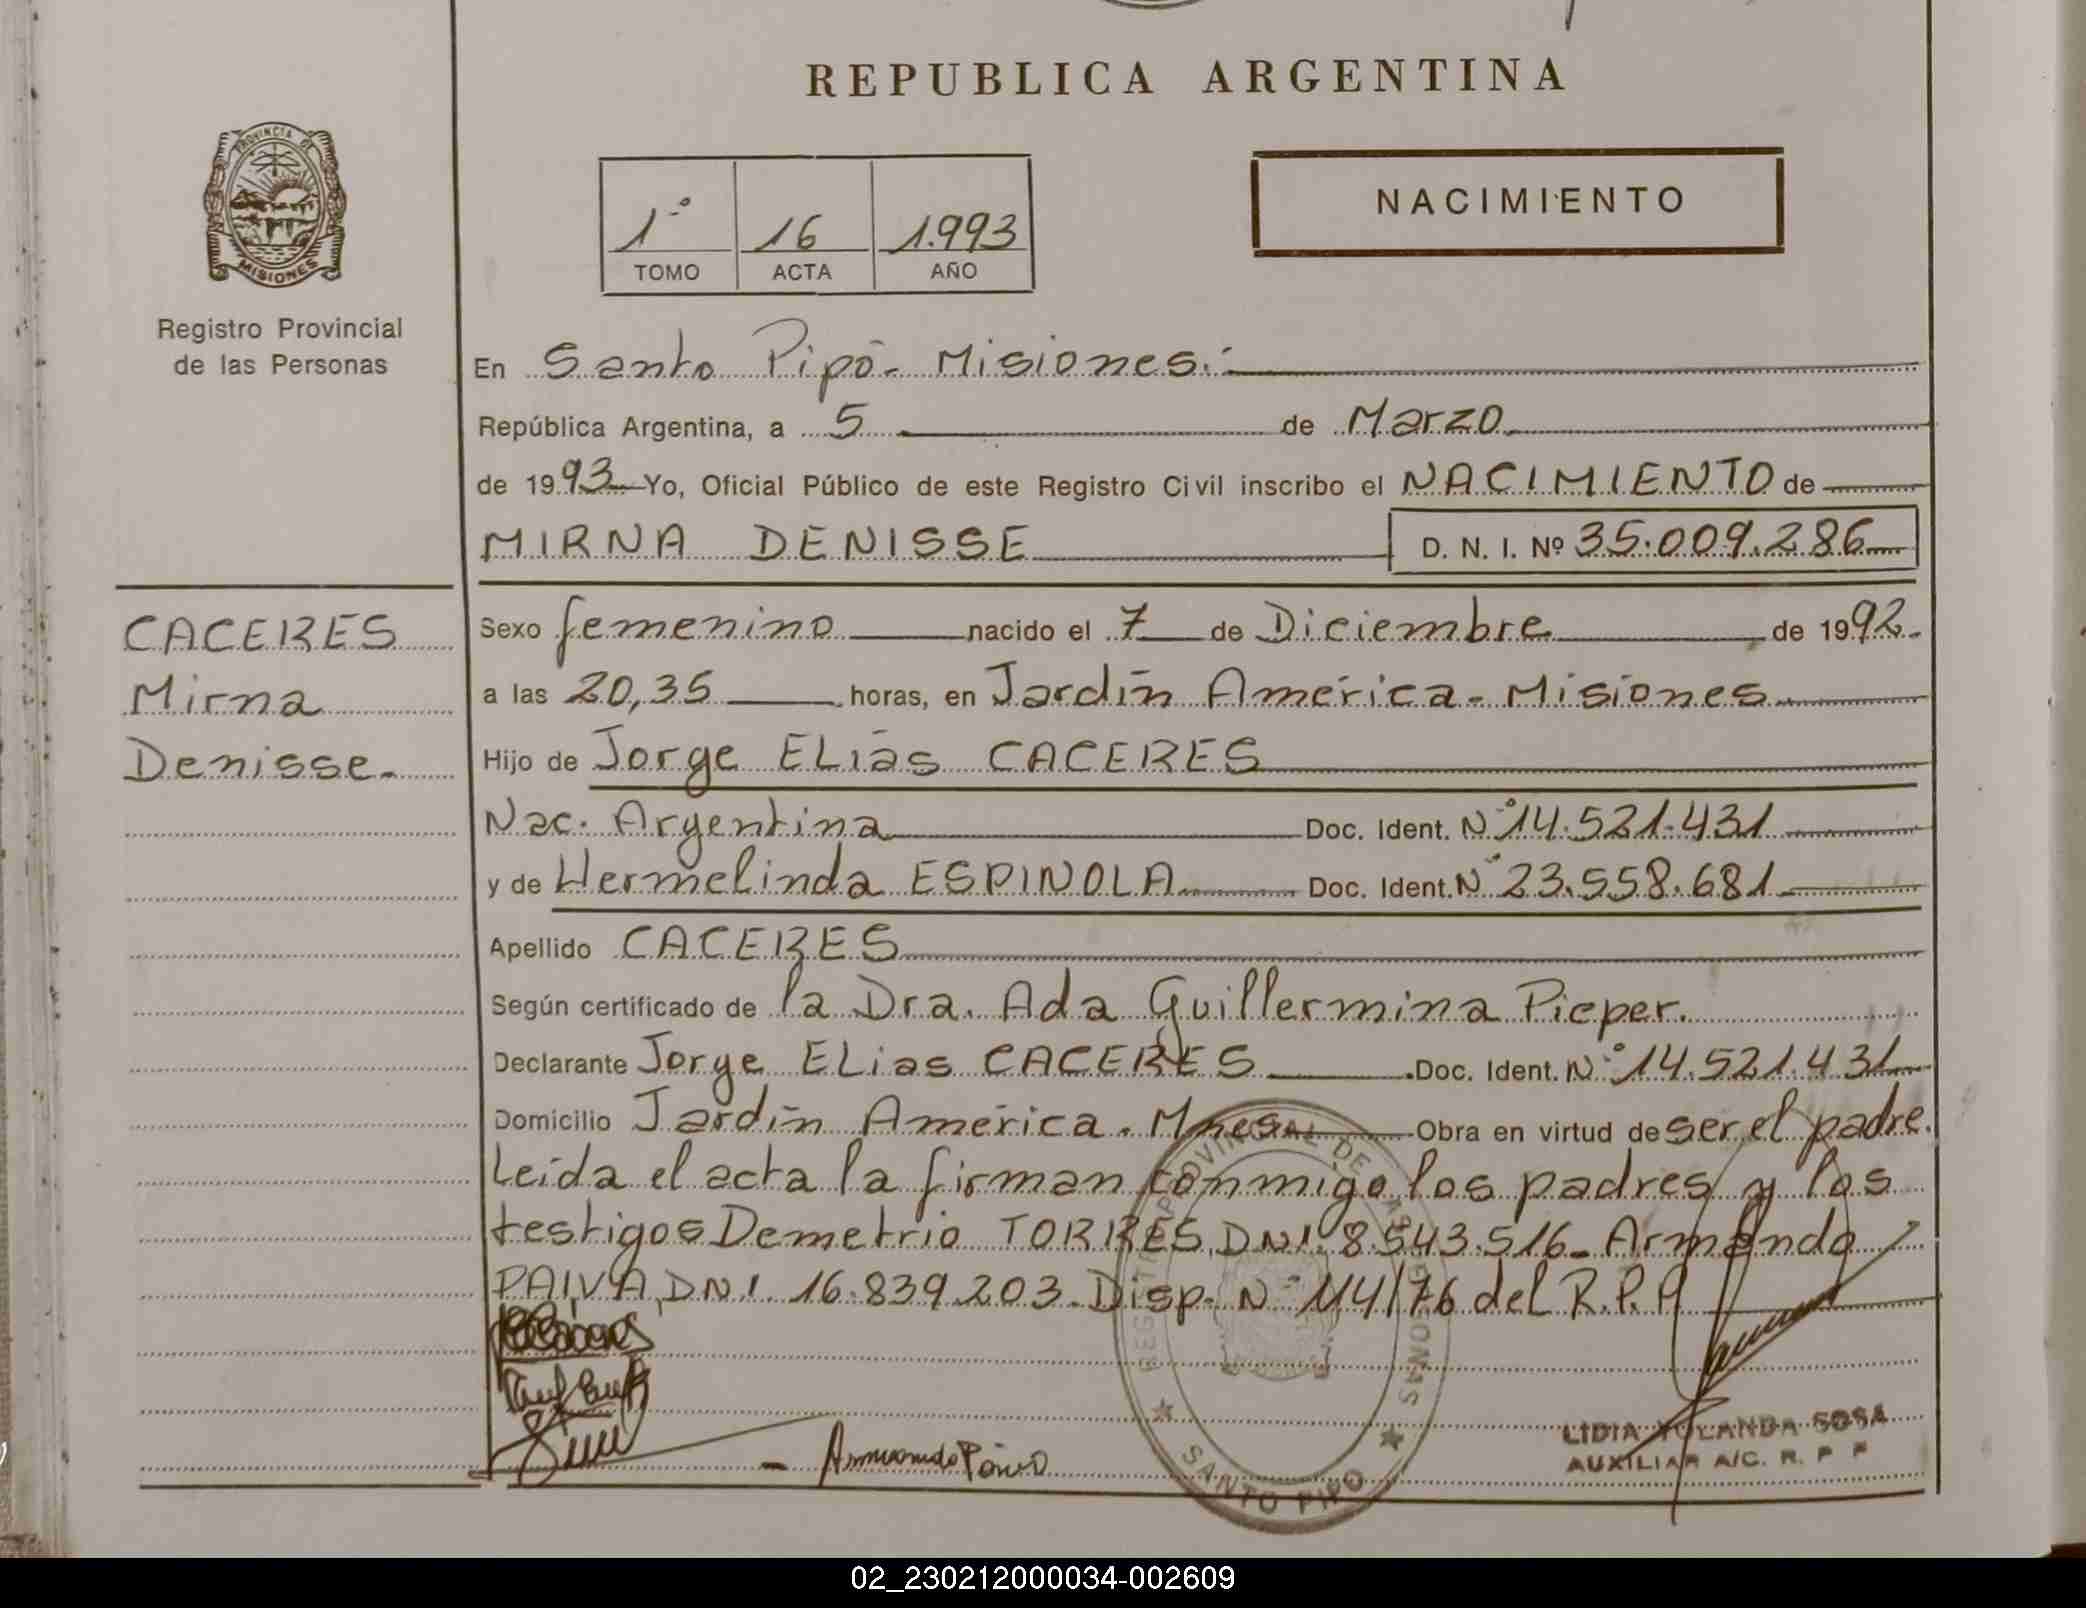 REPUBLICA ARGENTINA
PROVINCIA DE
MISIONES
Registro Provincial
de las Personas
1º 16 1.993
TOMO ACTA AÑO
NACIMIENTO
En Santo Pipó - Misiones.-
República Argentina, a 5 de Marzo
de 1993 Yo, Oficial Público de este Registro Civil inscribo el NACIMIENTO de
MIRNA DENISSE D. N. I. Nº 35.009.286
CACERES
Mirna
Denisse.-
Sexo femenino nacido el 7 de Diciembre de 1992.
a las 20,35 horas, en Jardín América - Misiones
Hijo de Jorge ELías CACERES
Nac. Argentina Doc. Ident. Nº 14.521.431
y de Hermelinda ESPINOLA Doc. Ident. Nº 23.558.681
Apellido CACERES
Según certificado de la Dra. Ada Guillermina Pieper.
Declarante Jorge ELias CACERES Doc. Ident. Nº 14.521.431
Domicilio Jardín América - Mnes Obra en virtud de ser el padre.
Leída el acta la firman conmigo los padres y los
testigos Demetrio TORRES, DNI. 8.543.516 - Armando
PAIVA, DNI. 16.839.203. Disp. Nº 114/76 del R.P.P
Armando Paiva
REGISTRO PROVINCIAL DE LAS PERSONAS
SANTO PIPO
LIDIA YOLANDA SOSA
AUXILIAR A/C. R. P P
02_230212000034-002609